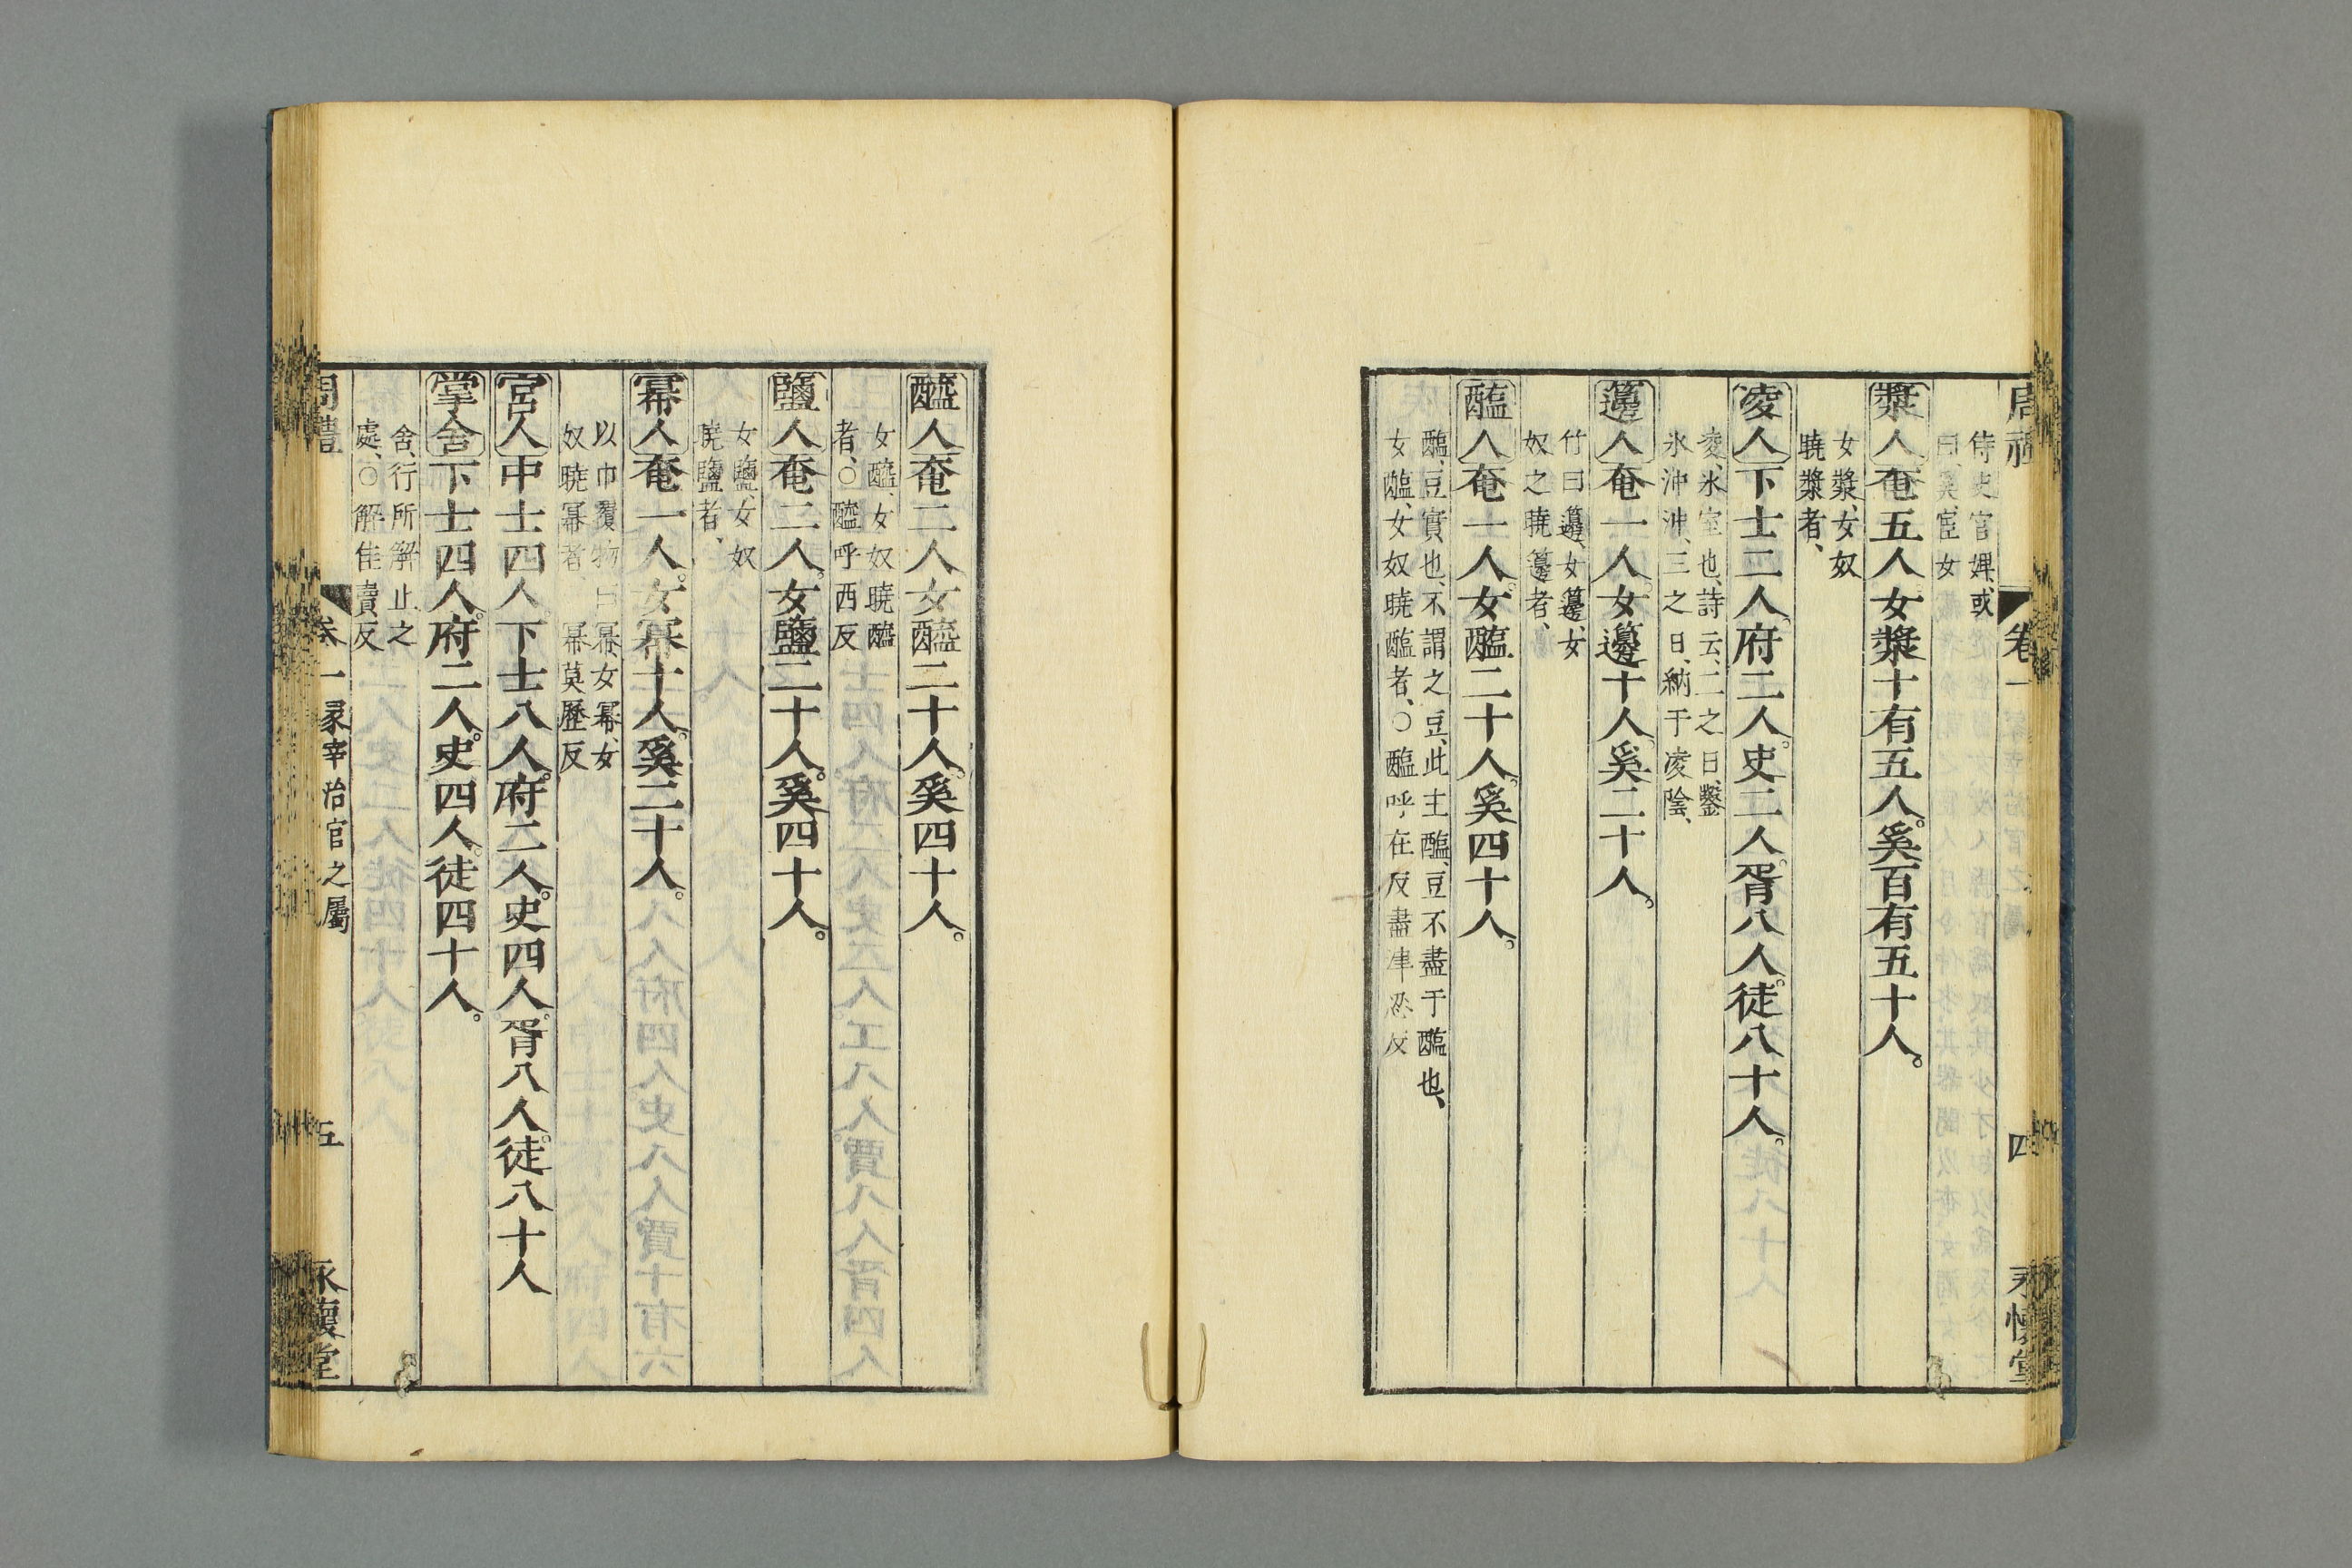 侍史官婢、或
曰、奚、宦女
漿人奄五人女漿十有五人。奚百有五十人。
女漿、女奴
曉漿者、
凌人下士二人府二人。史二人。胥八人。徒八十人。
凌、氷室也、詩云、二之日、鑿
氷沖沖、三之日、納于凌陰、
籩人奄一人。女籩十人。奚二十人。
竹曰籩、女籩、女
奴之曉籩者、
醢人奄一人。女醢二十人。奚四十人。
醢、豆實也、不謂之豆、此主醢、豆不盡于醢也、
女醢、女奴曉醢者、○醢呼在反盡津忍反
卷一
四
永懷堂
醯人奄二人女醯二十人。奚四十人。
女醯、女奴曉醯
者、○醯呼西反
鹽人奄二人。女鹽二十人。奚四十人。
女鹽、女奴
曉鹽者、
冪人奄一人。女冪十人。奚二十人。
以巾覆物曰冪女冪、女
奴曉冪者、冪莫歷反
宮人中士四人下士八人。府二人。史四人。胥八人。徒八十人
掌舍下士四人。府二人。史四人。徒四十人。
舍、行所解止之
處、○解佳賣反
周禮
卷一冢宰治官之屬
五
永懷堂